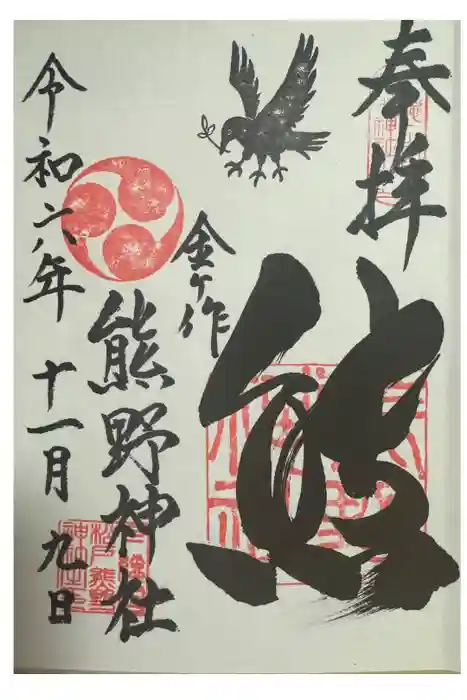 奉拝
熊
金ケ作
熊野神社
令和六年 十一月 九日